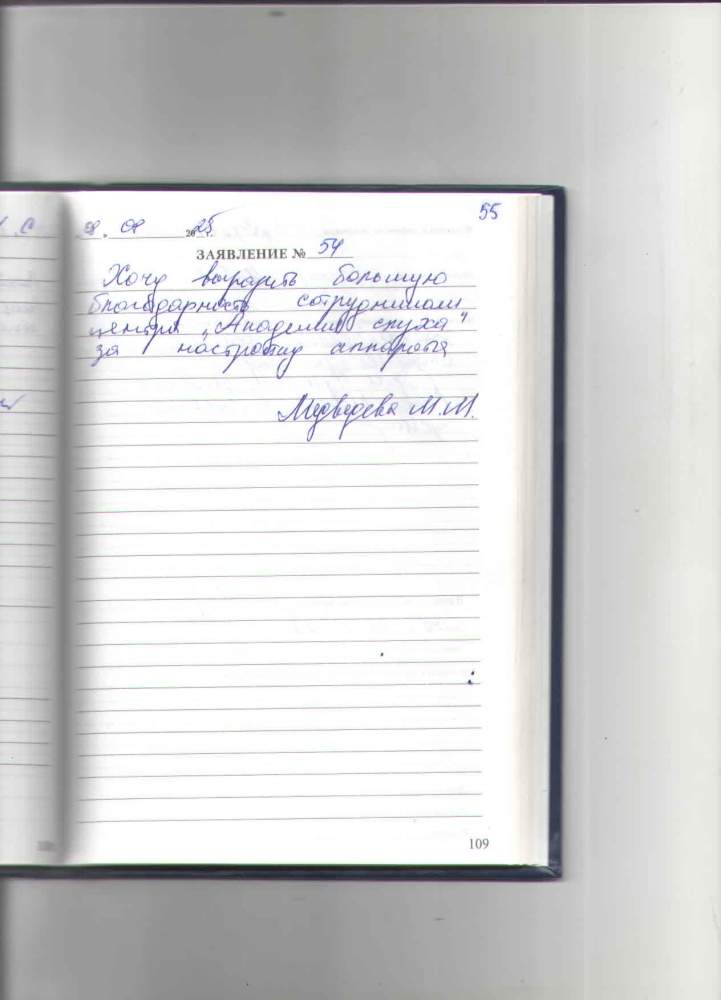 55
08 . 08 2025 г.
ЗАЯВЛЕНИЕ № 54
Хочу выразить большую
благодарность сотрудникам
центра „Академия слуха"
за настройку аппарата
Медведева М.М.
109